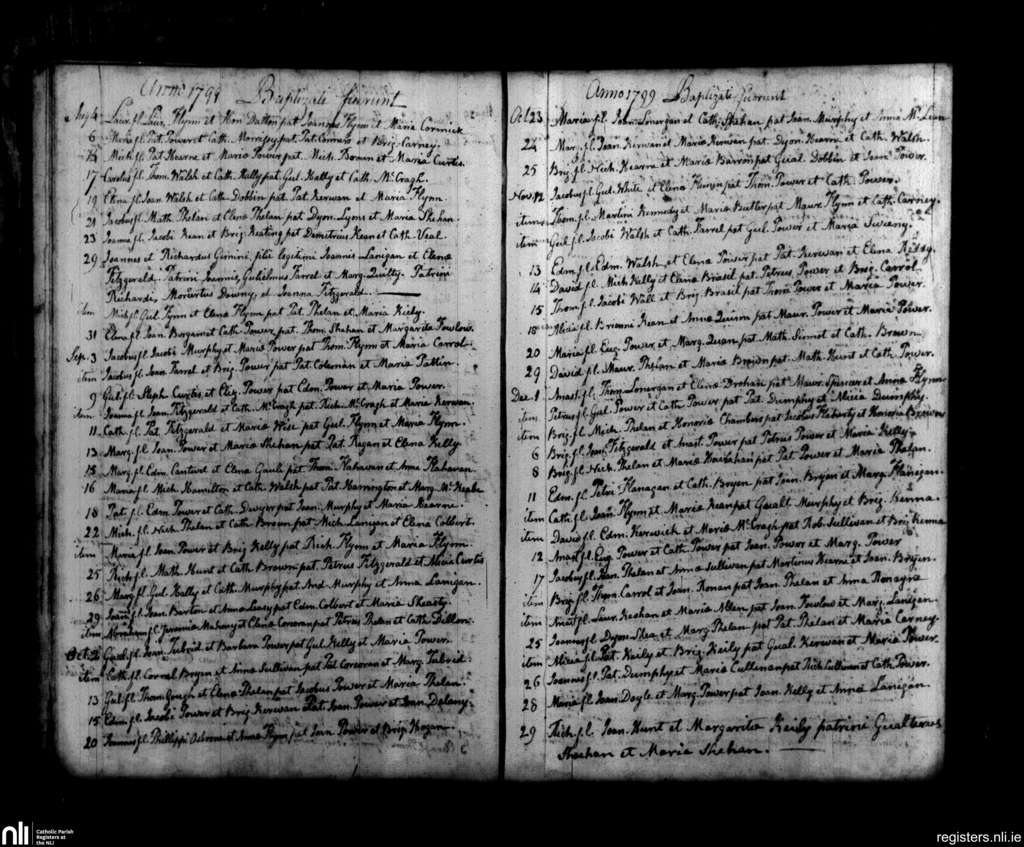 Anno 1799 Baptizati fuerunt
Aug 4 Laur. fl. Laur. Flynn et Hon. Dalton pat Joannes Flynn et Maria Cormick
6 fl. Pat. Power et Cath. Morrissy pat. Pat. Connors et Brig. Carney.
Mich. fl. Pat. Hearne et Maria Power pat. Mich. Bowen et Maria Curtis.
17 Carolus fl. Thom. Walsh et Cath. Kelly pat Gul. Kally et Cath. McCragh.
19 Elena fl. Joan. Walsh et Cath. Dobbin pat. Pat. Kerwan et Maria Flynn.
21 Jacobus fl. Math. Phelan et Elena Phelan pat. Dyon. Lyons et Maria Shehan.
23 Joanna fl. Jacobi Kean et Brig. Keating pat Demetrius Kean et Cath. Veal.
29 Joannes et Richardus Gemini, filii legitimi Joannis Lanigan et Elena
Fitzgerald. Patrini Joannis, Guhelmus Farrel et Marg. Quilty. Patrini
Richardi, Moriertus Downy, et Joanna Fitzgerald.
item Mich. fl. Gul. Flynn et Elena Flynn pat Pat. Phelan et Maria Kiely.
31 Elena fl. Joan. Bergan et Cath. Power pat. Thom. Shehan et Margarita Fowlow.
Sep. 3 Jacobus fl. Jacobi Murphy et Maria Power pat Thom. Flynn et Maria Carrol.
item Jacobus fl. Joan. Farrel et Brig. Power pat Pat. Coleman et Maria
9 Gul. fl. Steph. Curtis et Eliz. Power pat Edm. Power et Maria Power.
item Joanna fl. Joan. Fitzgerald et Cath. McCragh pat. Rich. McCragh et Maria Kerwan.
11 Cath. fl. Pat. Fitzgerald et Maria Wise pat Gul. Flynn et Maria Flynn.
13 Marg. fl. Joan. Power et Maria Shehan pat Pat. Regan et Elena Kelly
15 Marg. fl. Edm. Cantwel et Elena Gauli pat Thom. Flahavan et Anna Flahavan
16 Maria fl. Mich. Hamilton et Cath. Walsh pat Pat. Harrington et Marg.
18 Pat. fl. Edm. Power et Cath. Dwyer pat Joan. Murphy et Maria Hearne.
22 Mich. fl. Nich. Phelan et Cath. Brown pat Mich. Lanigan et Elena Colbert.
item Maria fl. Joan. Power et Brig. Kelly pat Rich. Flynn et Maria Flynn.
25 Rich. fl. Math. Hunt et Cath. Brown pat. Petrus Fitzgerald et Alicia Curtis
26 Marg. fl. Gul. Kally et Cath. Murphy pat And. Murphy et Anna Lanigan.
29 Joan. fl. Joan. Barton et Anna Leary pat Edm. Colbert et Maria Sheasty.
item Abraham fl. Jeremia Mahony et Elena Corcoran pat Petrus Phelan et Cath. Dillon.
Oct. 2 fl. Joan. Tubrid et Barbara Power pat Gul. Kelly et Maria Power.
item Cath. fl. Cornel. Bryan et Anna Sullivan pat Pat. Corcoran et Marg. Tubrid.
13 Gul. fl. Thom. Gough et Elena Phelan pat Jacobus Power et Maria Phelan.
15 Edm. fl. Jacobi Power et Brig. Kerwan Pat. Joan. Power et Joan. Delany.
20 Joannes fl. Phillippi Osborne et Anna Flynn pat Joan. Power et Brig. Hogan.
Anno 1799 Baptizati fuerunt
Oct 23 Maria fl. Joan. Lonergan et Cath. Shehan pat Joan. Murphy et Anna
24 Mar. fl. Joan. Kerwan et Maria Kerwan pat. Dyon. Hearne et Cath. Walsh.
25 Brig. fl. Nich. Hearne et Maria Barron pat Gual. Dobbin et Joan. Power.
Nov. 12 Jacobus fl. Gul. White et Elena Flynn pat Thom. Power et Cath. Power.
item Thom. fl. Martini Kennedy et Maria Butler pat Maur. Flynn et Cath. Carney.
item Gul. fl. Jacobi Walsh et Cath. Farrel pat Gul. Power et Maria Sweeny.
13 Edm. fl. Edm. Walsh et Elena Power pat Pat. Kerwan et Elena Roddy.
14 David fl. Mich. Kelly et Elena Brasil pat. Petrus Power et Brig. Carrol.
15 Thom. fl. Jacobi Wall et Brig. Brasil pat Thom. Power et Maria Power.
Alicia fl. Kean et Anna Quinn pat Maur. Power et Maria Power.
20 Maria fl. Eug. Power et Marg. Quan pat Math. Sinnot et Cath. Brown
29 David fl. Maur. Phelan et Maria Brown pat. Math. Hunt et Cath. Power.
Dec. 1 Anast. fl. Thom. Lonergan et Elena Drohan pat Maur. Spencer et Anna Flynn.
item Petrus fl. Gul. Power et Cath. Power pat Pat. Dumphy et Alicia Dumphy.
item Brig. fl. Mich. Phelan et Honoria Chambers pat Jacobus Flaherty et Honoria Brown
6 Brig. fl. Joan. Fitzgerald et Anast. Power pat Petrus Power et Maria Kelly.
8 Brig. fl. Nich. Phelan et Maria pat Pat. Power et Maria Phelan.
11 Edm. fl. Petri Flanagan et Cath. Bryan pat Joan. Bryan et Marg. Flanigan.
item Cath. fl. Joan. Flynn et Maria Kean pat Gualt. Murphy et Brig. Kenna.
item David fl. Edm. Kerwick et Maria McCragh pat Rob. Sullivan et Brig. Kenna
12 Anast. fl. Eug. Power et Cath. Power pat Joan. Power et Marg. Power
17 Jacobus fl. Joan. Phelan et Anna Sullivan pat Martinus Hearne et Joan. Bryan.
item Brig. fl. Thom. Carrol et Joan. Ronan pat Joan. Phelan et Anna Ronayne
item Anast. fl. Laur. Keohan et Maria pat Joan. Fowlow et Marg. Lanigan
25 Joannes fl. Dyon. Shea et Marg. Phelan pat Pat. Phelan et Maria Carney.
item Alicia fl. Pat. Keily et Brig. Keily pat Gual. Kerwan et Maria Power.
26 Joannes fl. Pat. Dumphy et Maria Cullinan pat Rich. Cullinan et Cath. Power.
28 Maria fl. Joan. Doyle et Marg. Power pat Joan. Kelly et Anna Lanigan.
29 Rich. fl. Joan. Hunt et Margarita Keily patrini Gualterus
Shehan et Maria Shehan.
nli Catholic Parish
Registers at
the NLI
registers.nli.ie